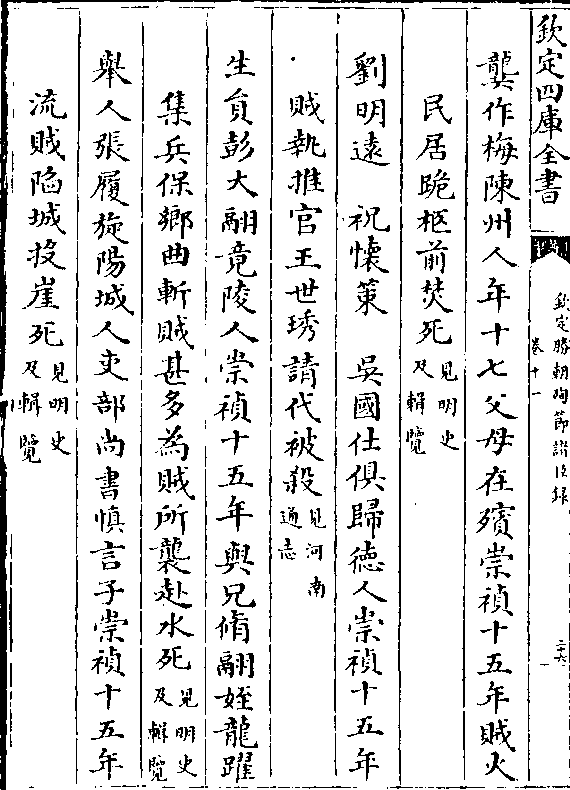 欽定四庫全書
欽定勝朝殉節諸臣録
卷十一
二六
龔作梅陳州人年十七父母在殯崇禎十五年賊火
民居跪柩前焚死見明史及輯覽
劉明遠　祝懷策　吳國仕俱歸德人崇禎十五年
賊執推官王世琇請代被殺見河南通志
生員彭大翮竟陵人崇禎十五年與兄脩翮姪龍躍
集兵保鄉曲斬賊甚多為賊所襲赴水死見明史及輯覽
舉人張履旋陽城人吏部尚書慎言子崇禎十五年
流賊陷城投崖死見明史及輯覽